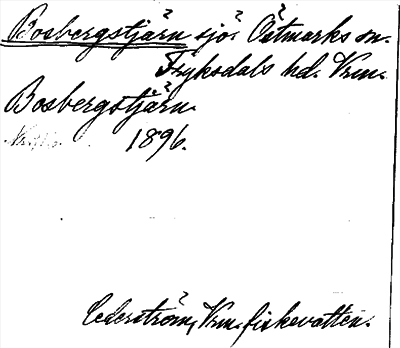 Bosbergstjärn sjö i Östmarks sn.
Fryksdals hd. Vrm.
Bosbergstjärn.
1896.
Cederström, Vrm. fiskevatten.